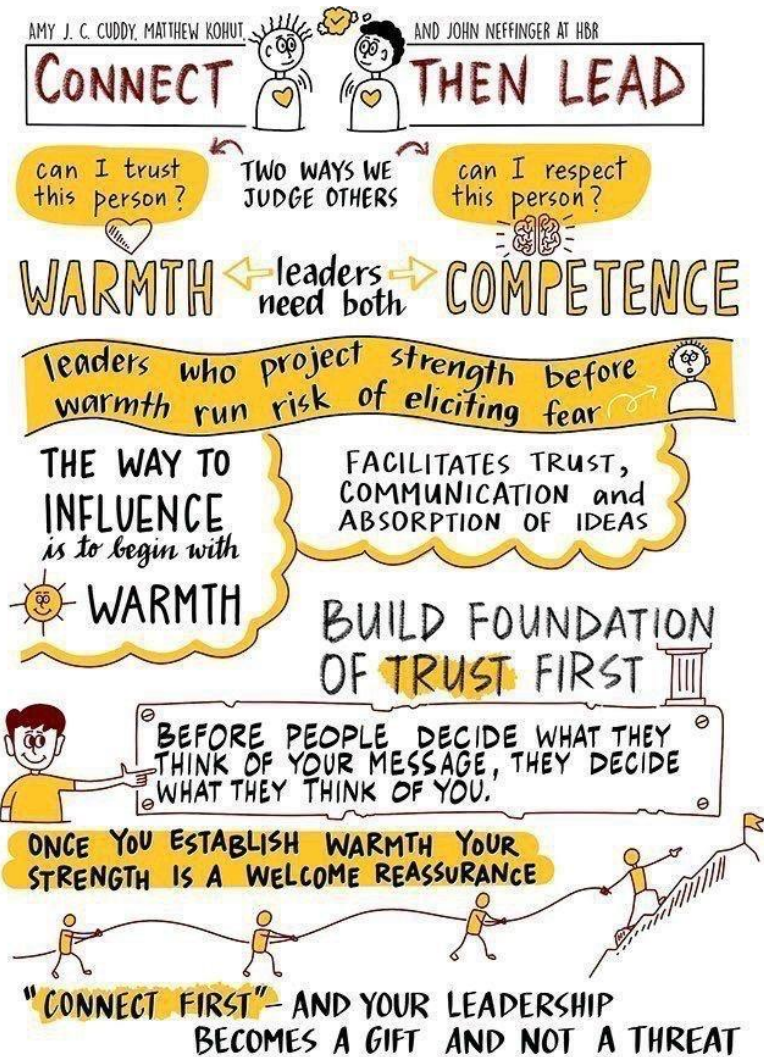 AMY J. C. CUDDY, MATTHEW KOHUT, AND JOHN NEFFINGER AT HBR
CONNECT THEN LEAD
can I trust
this person?
TWO WAYS WE
JUDGE OTHERS
can I respect
this person?
WARMTH
leaders
need both
COMPETENCE
leaders who project strength before
warmth run risk of eliciting fear
THE WAY TO
INFLUENCE
is to begin with
WARMTH
FACILITATES TRUST,
COMMUNICATION and
ABSORPTION OF IDEAS
BUILD FOUNDATION
OF TRUST FIRST
BEFORE PEOPLE DECIDE WHAT THEY
THINK OF YOUR MESSAGE, THEY DECIDE
WHAT THEY THINK OF YOU.
ONCE YOU ESTABLISH WARMTH YOUR
STRENGTH IS A WELCOME REASSURANCE
"CONNECT FIRST" - AND YOUR LEADERSHIP
BECOMES A GIFT AND NOT A THREAT